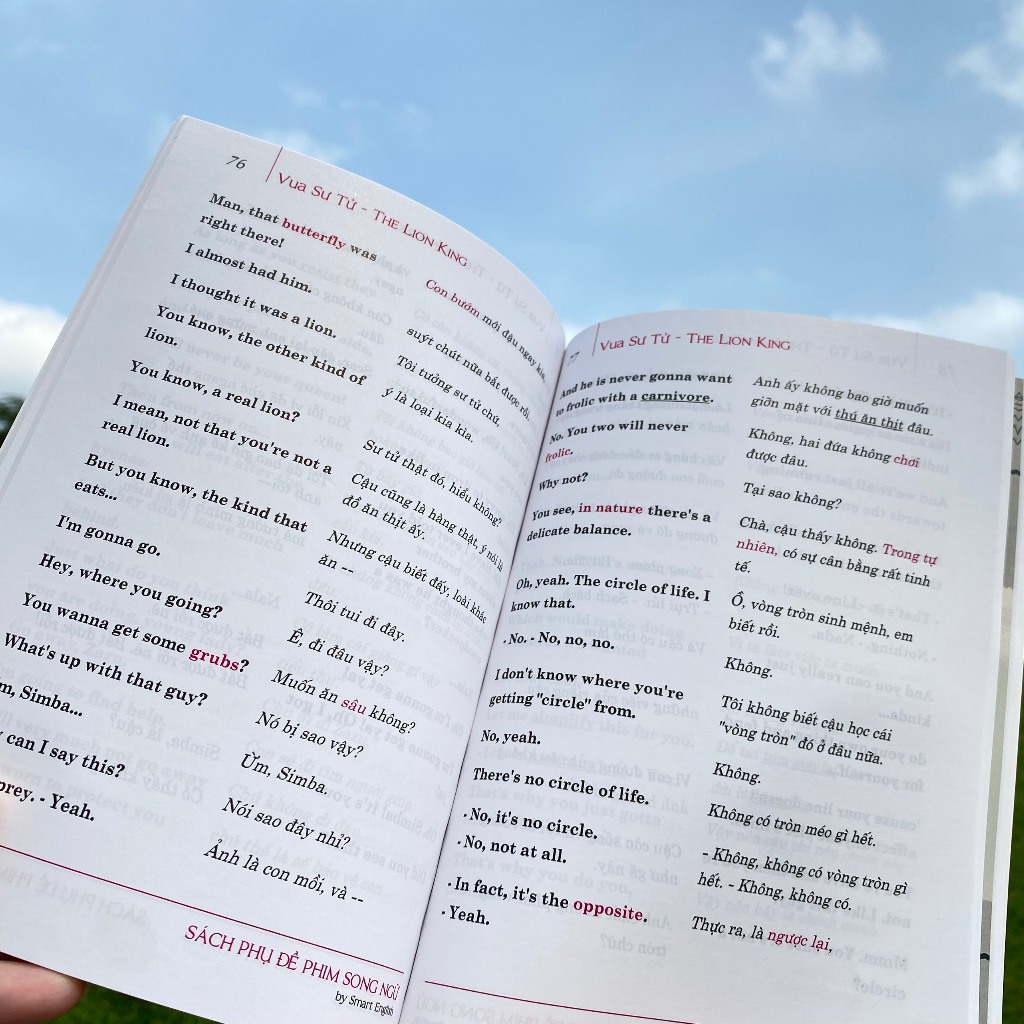 76
Vua Sư Tử - The Lion King
Man, that butterfly was
right there!
I almost had him.
I thought it was a lion.
You know, the other kind of
lion.
You know, a real lion?
I mean, not that you're not a
real lion.
But you know, the kind that
eats...
I'm gonna go.
Hey, where you going?
You wanna get some grubs?
What's up with that guy?
Simba...
can I say this?
prey. - Yeah.
Con bướm mới đậu ngay kia,
suýt chút nữa bắt được rồi.
Tôi tưởng sư tử chứ,
ý là loại kia kìa.
Sư tử thật đó, hiểu không?
Cậu cũng là hàng thật, ý nói là
đồ ăn thịt ấy.
Nhưng cậu biết đấy, loài khác
ăn --
Thôi tui đi đây.
Ê, đi đâu vậy?
Muốn ăn sâu không?
Nó bị sao vậy?
Ừm, Simba.
Nói sao đây nhỉ?
Ảnh là con mồi, và --
SÁCH PHỤ ĐỀ PHIM SONG NGỮ
by Smart English
Vua Sư Tử - The Lion King
And he is never gonna want
to frolic with a carnivore.
No. You two will never
frolic.
Why not?
You see, in nature there's a
delicate balance.
Oh, yeah. The circle of life. I
know that.
- No. - No, no, no.
I don't know where you're
getting "circle" from.
No, yeah.
There's no circle of life.
- No, it's no circle.
- No, not at all.
- In fact, it's the opposite.
- Yeah.
Anh ấy không bao giờ muốn
giỡn mặt với thú ăn thịt đâu.
Không, hai đứa không chơi
được đâu.
Tại sao không?
Chà, cậu thấy không. Trong tự
nhiên, có sự cân bằng rất tinh
tế.
Ồ, vòng tròn sinh mệnh, em
biết rồi.
Không.
Tôi không biết cậu học cái
"vòng tròn" đó ở đâu nữa.
Không.
Không có tròn méo gì hết.
- Không, không có vòng tròn gì
hết. - Không, không có.
Thực ra, là ngược lại,